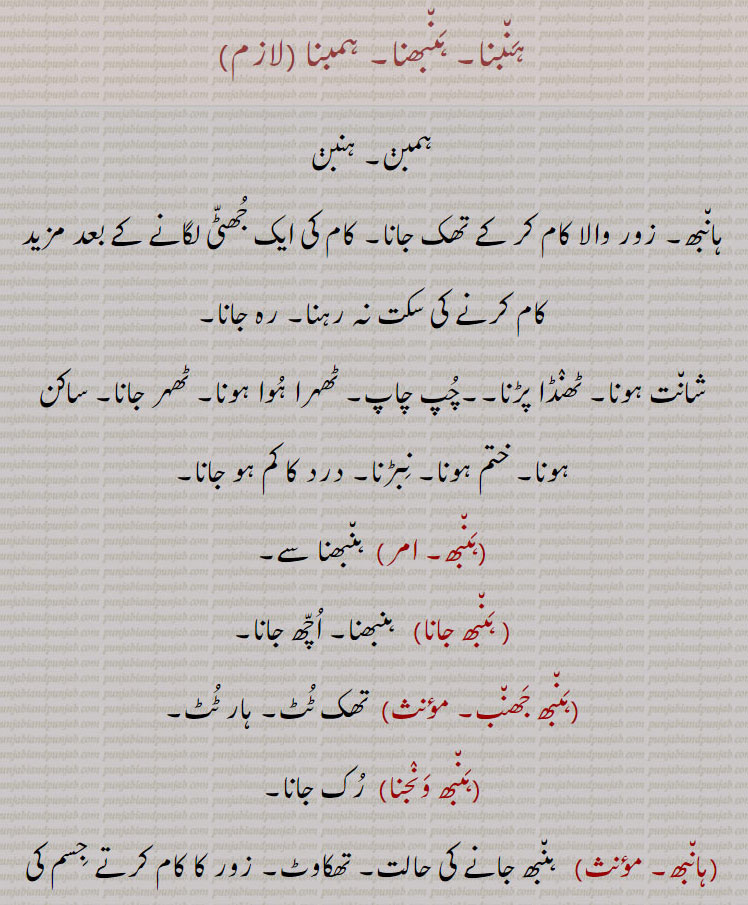 ہَنّبنا۔ ہَنّبھنا۔ ہمبنا (لازم)
ہمبݨ۔ ہنبݨ
ہانّبھ۔ زور والا کام کر کے تھک جانا۔ کام کی ایک جُھٹّی لگانے کے بعد مزید
کام کرنے کی سکت نہ رہنا۔ رہ جانا۔
شانّت ہونا۔ ٹھنڈا پڑنا۔۔چُپ چاپ۔ ٹھہرا ہُوا ہونا۔ ٹھہر جانا۔ ساکن
ہونا۔ ختم ہونا۔ نِبڑنا۔ درد کا کم ہو جانا۔
(ہَنّبھ۔ امر) ہنّبھنا سے۔
(ہَنّبھ جانا) ہنبھنا۔ اُچّھ جانا۔
(ہَنّبھ جَھنّب۔ مؤنث) تھک ٹُٹ۔ ہار ٹُٹ۔
(ہَنّبھ وَنْجنا) رُک جانا۔
(ہانّبھ۔ مؤنث) ہنّبھ جانے کی حالت۔ تھکاوٹ۔ زور کا کام کرتے جِسم کی